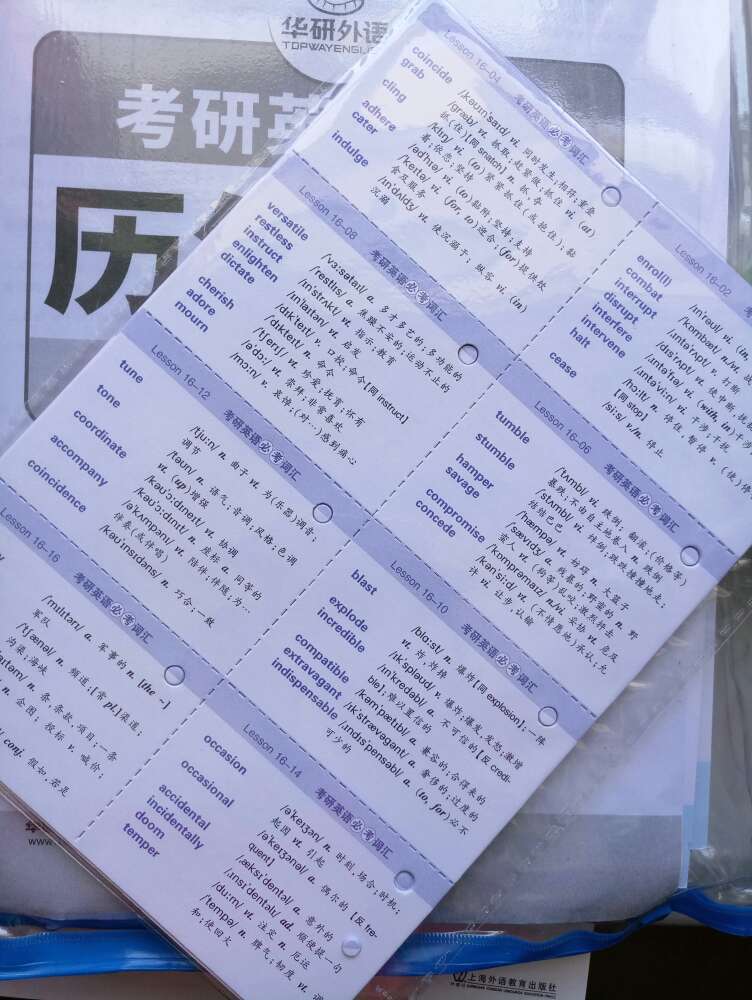 华研外语
TOPWAYENGL
考研英
历
Lesson 16-04 考研英语必考词汇
coincide /ˌkəʊɪnˈsaɪd/ vi. 同时发生;相符;重叠
grab /græb/ vt. 抓取;赶紧做;抓住 vi. (at)
抓(住)[同snatch] n. 抓,夺
cling /klɪŋ/ vi. (to)紧紧抓住(或抱住);黏
着;依恋;坚持
adhere /ədˈhɪə/ vi. (to)黏附;坚持;支持
cater /ˈkeɪtə/ vi. (for, to)迎合;(for)提供饮
食及服务
indulge /ɪnˈdʌldʒ/ vt. 使沉溺于,纵容 vi. (in)
沉溺
Lesson 16-02 考
enrol(l) /ɪnˈrəʊl/ vi.
combat /ˈkɒmbæt/ n./vt.
interrupt /ˌɪntəˈrʌpt/ v. 打断
disrupt /dɪsˈrʌpt/ vt. 使中断;扰
interfere /ˌɪntəˈfɪə/ vi. (with, in)干涉
intervene /ˌɪntəˈviːn/ vi. 干涉;干扰
halt /hɔːlt/ n. 停住,暂停 v. (使)停
[同stop]
cease /siːs/ v./n. 停止
Lesson 16-08 考研英语必考词汇
versatile /ˈvɜːsətaɪl/ a. 多才多艺的;多功能的
restless /ˈrestlɪs/ a. 焦躁不安的;运动不止的
instruct /ɪnˈstrʌkt/ vt. 指示;教育
enlighten /ɪnˈlaɪtən/ vt. 启发
dictate /dɪkˈteɪt/ v. 口授;命令[同instruct]
/ˈdɪkteɪt/ n. 命令
cherish /ˈtʃerɪʃ/ vt. 珍爱;抚育;怀有
adore /əˈdɔː/ vt. 崇拜;非常喜欢
mourn /mɔːn/ v. 哀悼;(对…)感到痛心
Lesson 16-06 考研英语必考词汇
tumble /ˈtʌmbl/ vi. 跌倒;翻滚;(价格等)
暴跌;不由自主地卷入 n. 跌倒
stumble /ˈstʌmbl/ vi. 绊倒;跌跌撞撞地走;
结结巴巴
hamper /ˈhæmpə/ vt. 妨碍 n. 大篮子
savage /ˈsævɪdʒ/ a. 残暴的;野蛮的 n. 野
蛮人 vt. (狗等)乱咬;激烈抨击
compromise /ˈkɒmprəmaɪz/ n./vi. 妥协 vt. 危及
concede /kənˈsiːd/ vt. (不情愿地)承认;允
许 vi. 让步,认输
Lesson 16-12 考研英语必考词汇
tune /tjuːn/ n. 曲子 vt. 为(乐器)调音;
调节
tone /təʊn/ n. 语气;音调;风格;色调
vt. (up)增强
coordinate /kəʊˈɔːdɪneɪt/ vt. 协调
/kəʊˈɔːdɪnt/ n. 座标 a. 同等的
accompany /əˈkʌmpəni/ vt. 陪伴;伴随;为…
伴奏(或伴唱)
coincidence /kəʊˈɪnsɪdəns/ n. 巧合;一致
Lesson 16-10 考研英语必考词汇
blast /blɑːst/ n. 爆炸[同explosion];一阵
vt. 炸,炸掉
explode /ɪkˈspləʊd/ v. 爆炸;爆发;发怒;激增
incredible /ɪnˈkredəbl/ a. 不可信的[反credi-
ble];难以置信的
compatible /kəmˈpætɪbl/ a. 兼容的;合得来的
extravagant /ɪkˈstrævəgənt/ a. 奢侈的;过度的
indispensable /ˌɪndɪsˈpensəbl/ a. (to, for)必不
可少的
Lesson 16-16 考研英语必考词汇
/ˈmɪlɪtəri/ a. 军事的 n. [the ~]
军队
/ˈtʃænəl/ n. 频道;[常pl.]渠道,
沟渠;海峡
n. 条,条款,项目;一条
n. 企图;投标 v. 喊价;
conj. 假如,若是
Lesson 16-14 考研英语必考词汇
occasion /əˈkeɪʒən/ n. 时刻,场合;时机;
起因 vt. 引起
occasional /əˈkeɪʒənəl/ a. 偶尔的[反fre-
quent]
accidental /ˌæksɪˈdentəl/ a. 意外的
incidentally /ˌɪnsɪˈdentəlɪ/ ad. 顺便提一句
doom /duːm/ vt. 注定 n. 厄运
temper /ˈtempə/ n. 脾气;韧度 vt. 调
和;使回火
华
www.
上海外语教育出版社